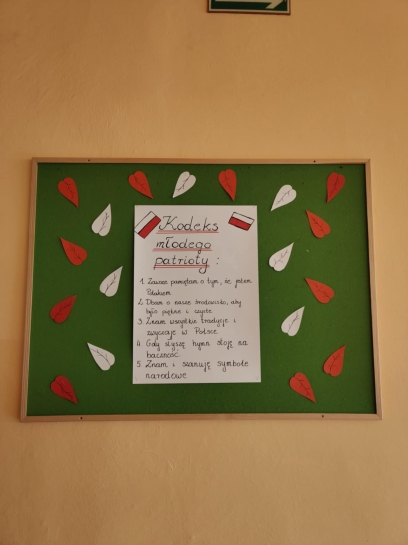 Kodeks
młodego
patrioty :
1. Zawsze pamiętam o tym, że jestem
Polakiem.
2. Dbam o nasze środowisko, aby
było piękne i czyste.
3. Znam wszystkie tradycje i
zwyczaje w Polsce.
4. Gdy słyszę hymn stoję na
baczność.
5. Znam i szanuję symbole
narodowe.